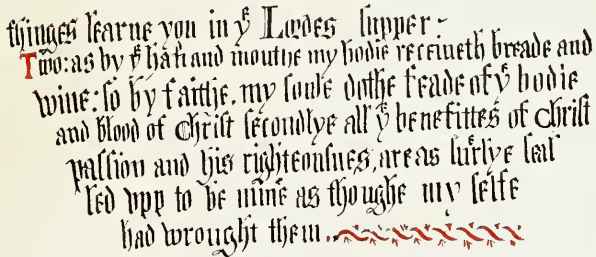 thinges learne you in yͤ Lordes supper:
Two: as by yͤ hāñ and mouthe my bodie receiueth breade and
wine: so by faithe, my soule dothe feade of yͤ bodie
and blood of Christ secondlye all yͤ benefittes of Christ
passion and his righteousnes, are as surlye seal
led vpp to be mine as thoughe my selfe
had wrought them.